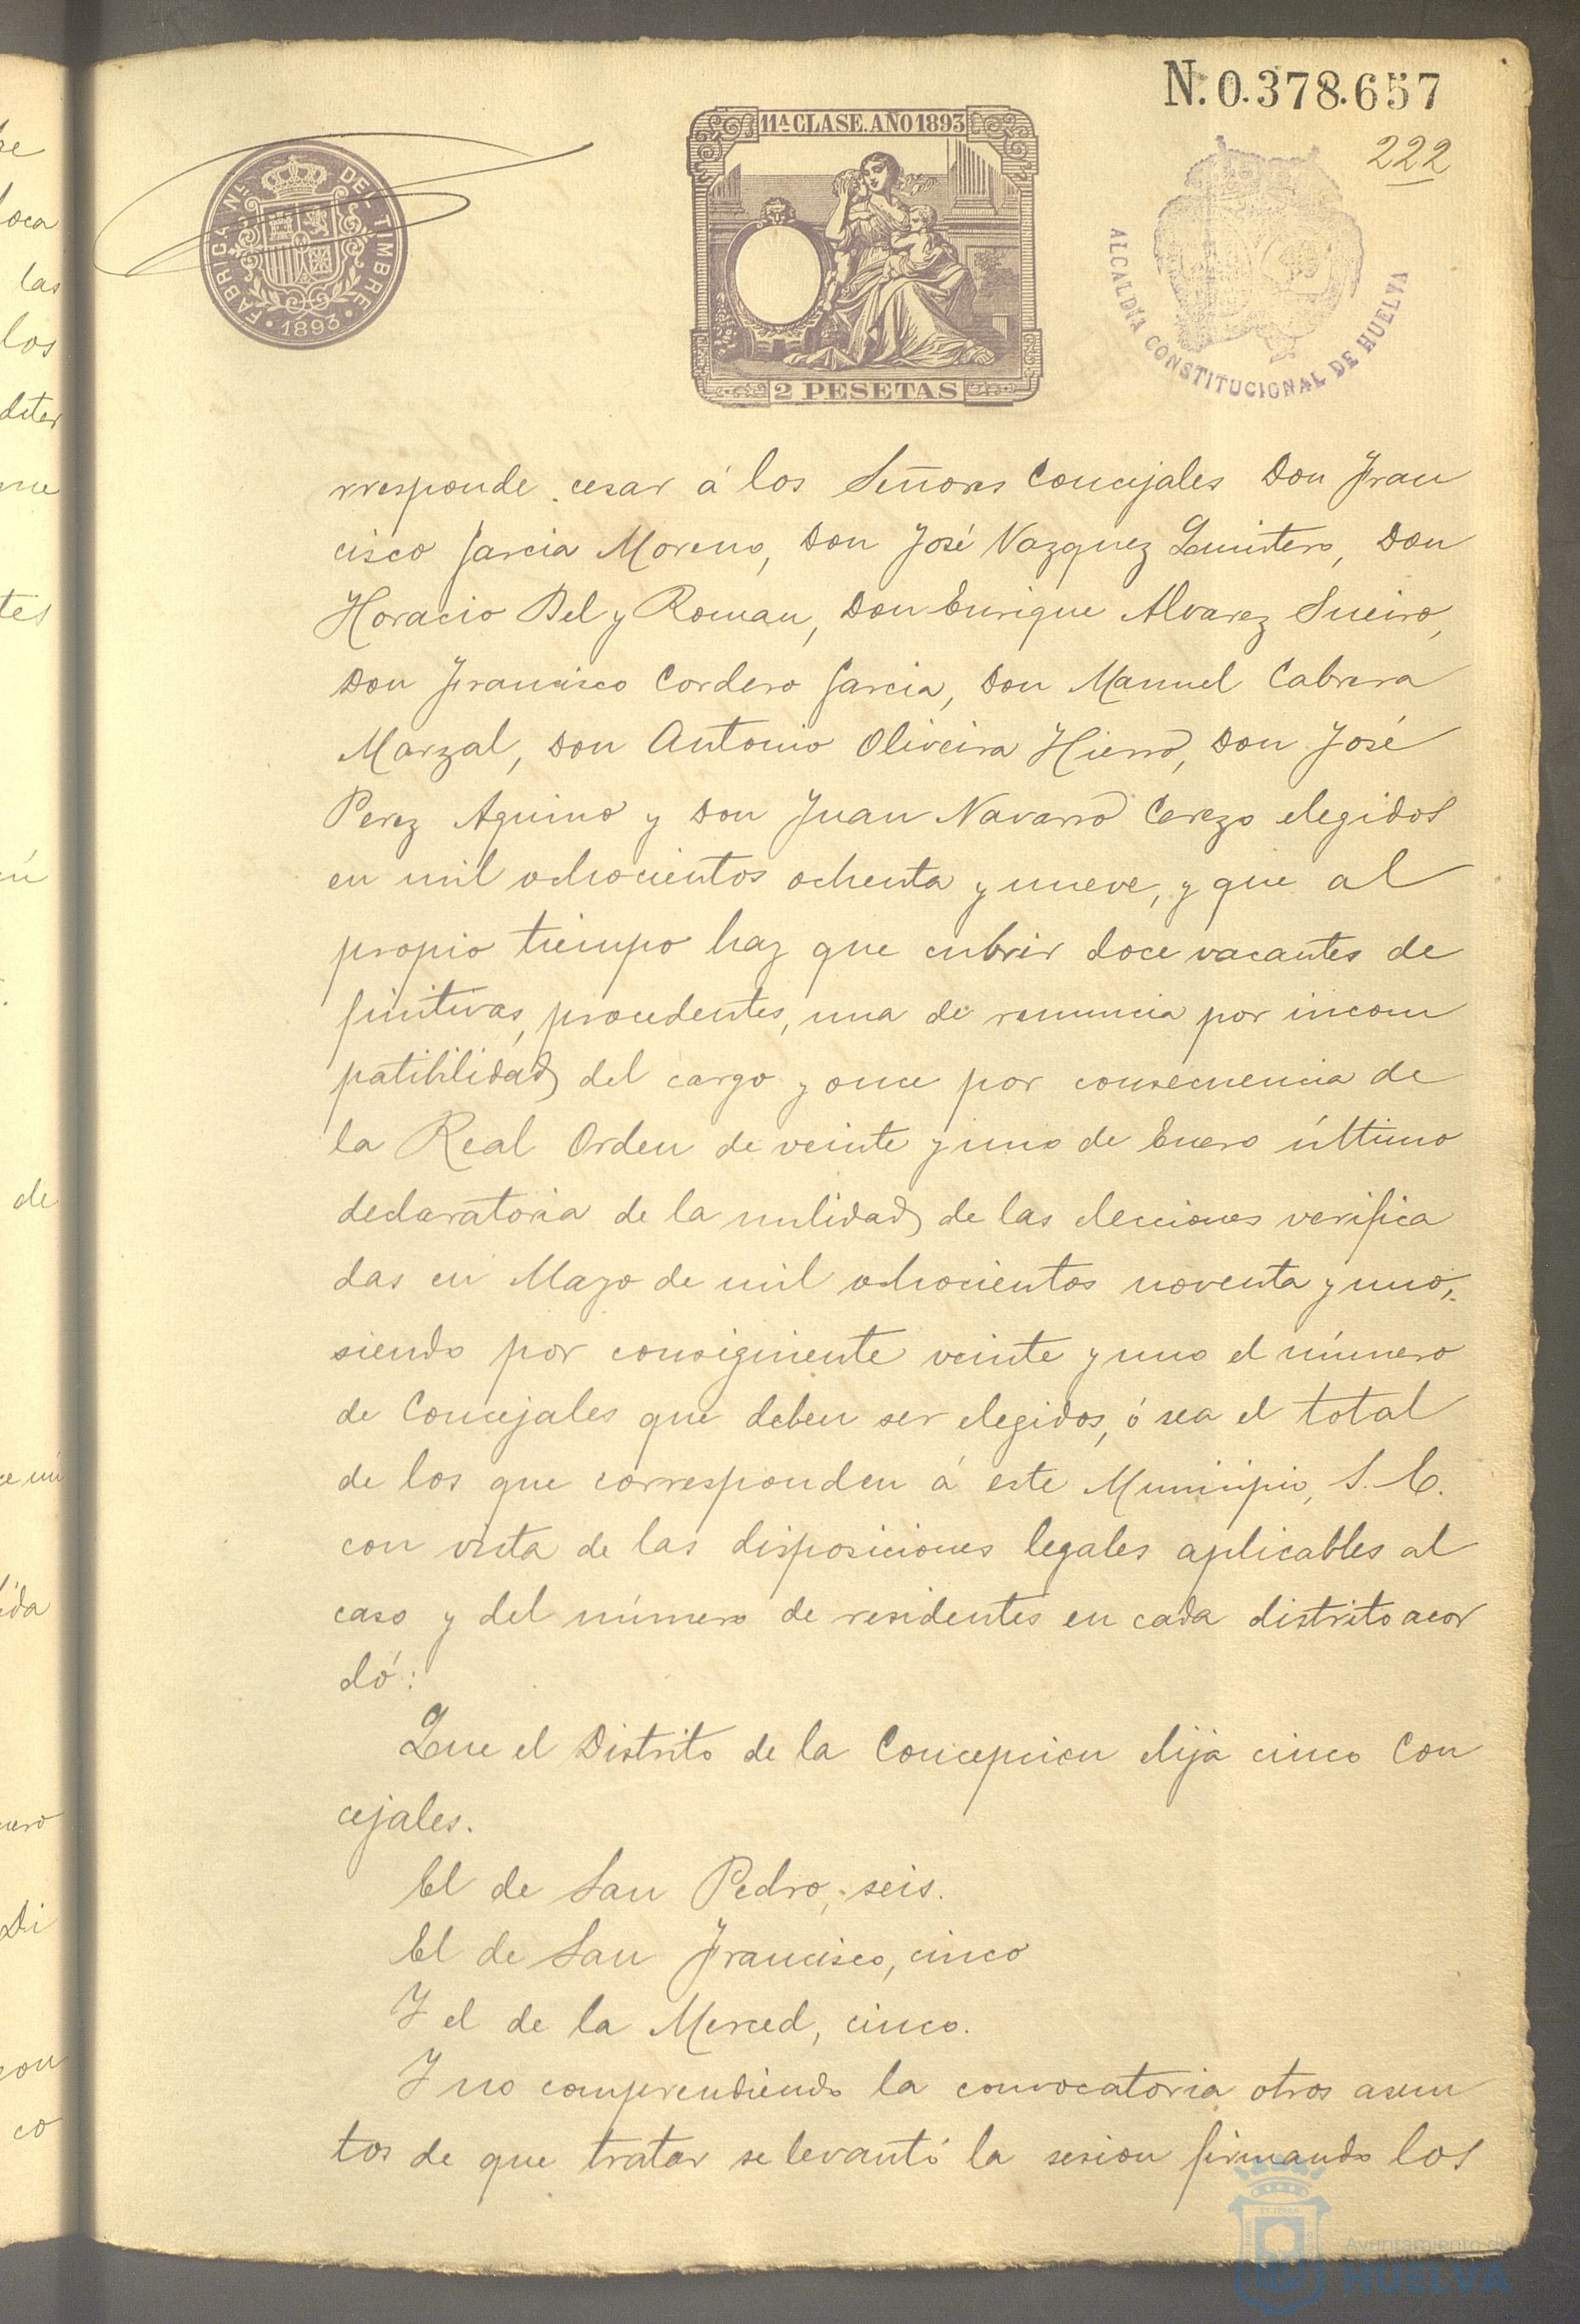 N. 0.378.657
222
11ª CLASE. AÑO 1893
2 PESETAS
FABRICA NL. DEL TIMBRE
1893
ALCALDÍA CONSTITUCIONAL DE HUELVA
rresponde cesar á los Señores Concejales Don Fran
cisco Garcia Moreno, Don José Vazquez Quintero, Don
Horacio Bel y Roman, Don Enrique Alvarez Sueiro,
Don Francisco Cordero Garcia, Don Manuel Cabrera
Marzal, Don Antonio Oliveira Hierro, Don José
Perez Aquino y Don Juan Navarro Cerezo elegidos
en mil ochocientos ochenta y nueve, y que al
propio tiempo hay que cubrir doce vacantes de
finitivas, procedentes, una de renuncia por incom
patibilidad del cargo y once por consecuencia de
la Real Orden de veinte y uno de Enero último
declaratoria de la nulidad de las elecciones verifica
das en Mayo de mil ochocientos noventa y uno,
siendo por consiguiente veinte y uno el número
de Concejales que deben ser elegidos, ó sea el total
de los que corresponden á este Municipio, S. E.
con vista de las disposiciones legales aplicables al
caso y del número de residentes en cada distrito acor
dó:
Que el Distrito de la Concepcion elija cinco Con
cejales.
El de San Pedro, seis.
El de San Francisco, cinco
Y el de la Merced, cinco.
Y no comprendiendo la convocatoria otros asun
tos de que tratar se levantó la sesion firmando los
Ayuntamiento de
HUELVA